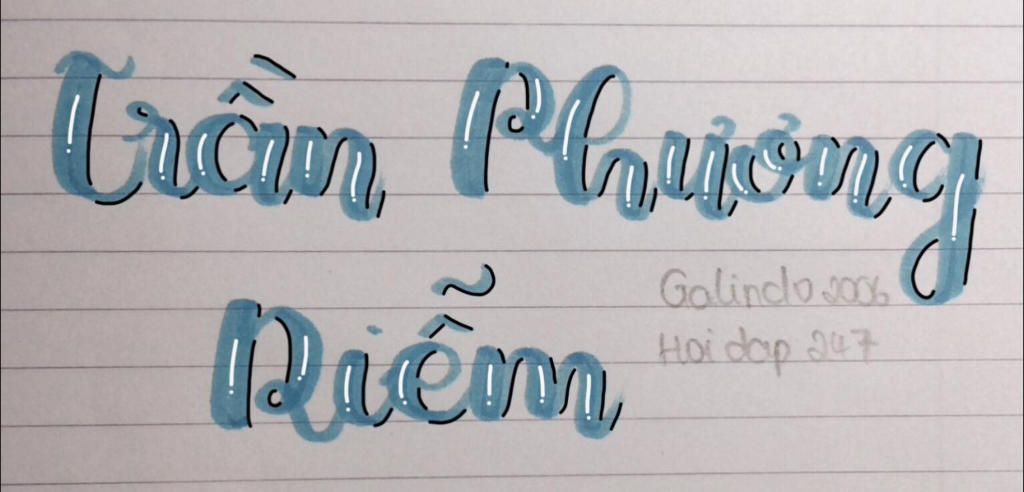 Trần Phương
Diễm
Galindo 2006
Hoi dap 247